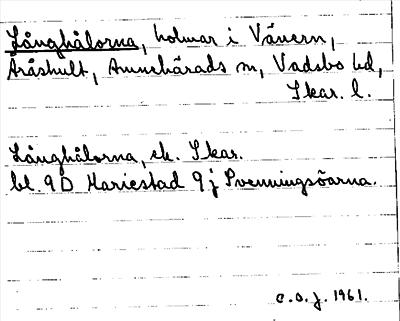 Långhålorna, holmar i Vänern,
Åråshult, Amnehärads sn, Vadsbo hd,
Skar. l.
Långhålorna, ek. Skar.
bl. 9D Mariestad 9j Svenningsöarna.
C.O.J. 1961.